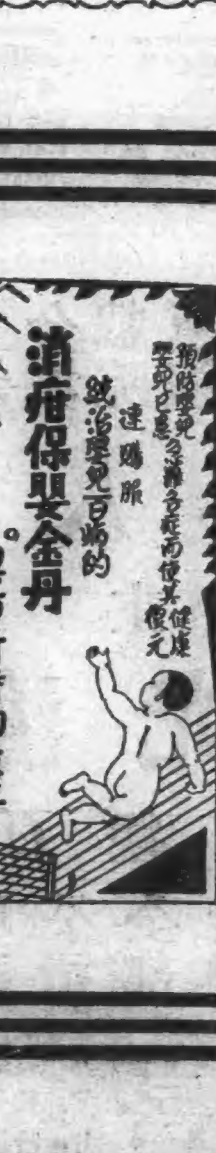 預防嬰兒
嬰兒已患
各症而使其
健康
復元
速購服
統治嬰兒百病的
消疳保嬰金丹